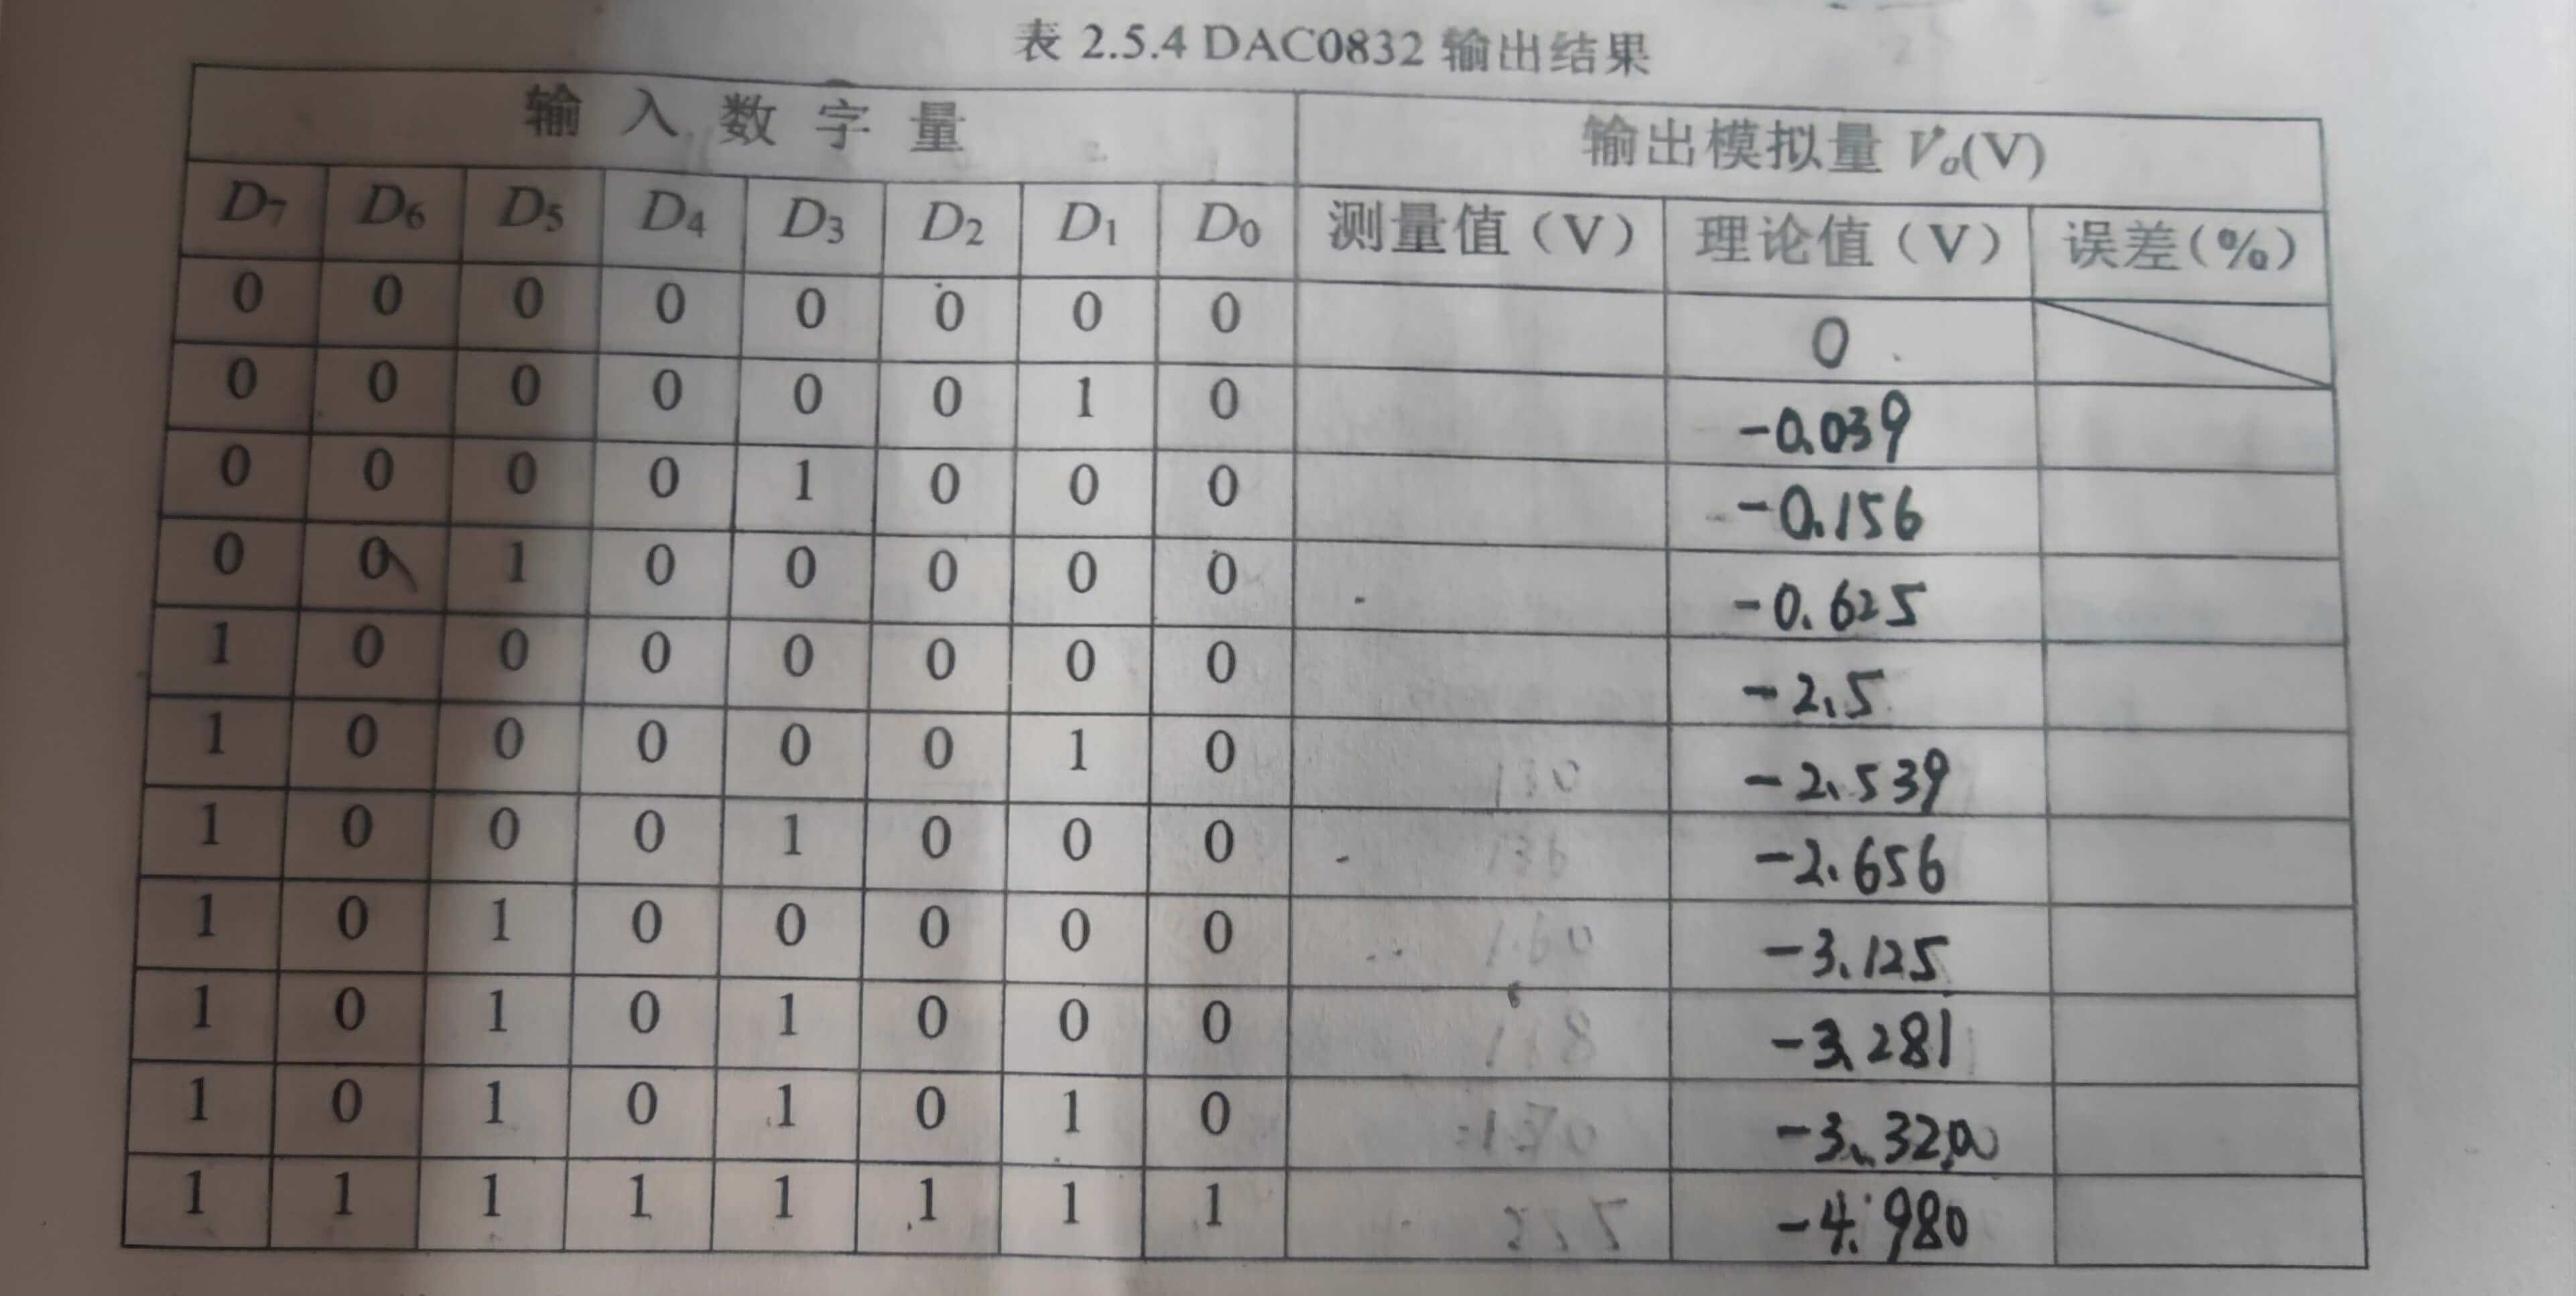 表 2.5.4 DAC0832 输出结果
输 入 数 字 量 输出模拟量 Vo(V)
D7 D6 D5 D4 D3 D2 D1 D0 测量值（V） 理论值（V） 误差(%)
0 0 0 0 0 0 0 0 0
0 0 0 0 0 0 1 0 -0.039
0 0 0 0 1 0 0 0 -0.156
0 0 1 0 0 0 0 0 -0.625
1 0 0 0 0 0 0 0 -2.5
1 0 0 0 0 0 1 0 130 -2.539
1 0 0 0 1 0 0 0 136 -2.656
1 0 1 0 0 0 0 0 -3.125
1 0 1 0 1 0 0 0 -3.281
1 0 1 0 1 0 1 0 -3.320
1 1 1 1 1 1 1 1 -4.980